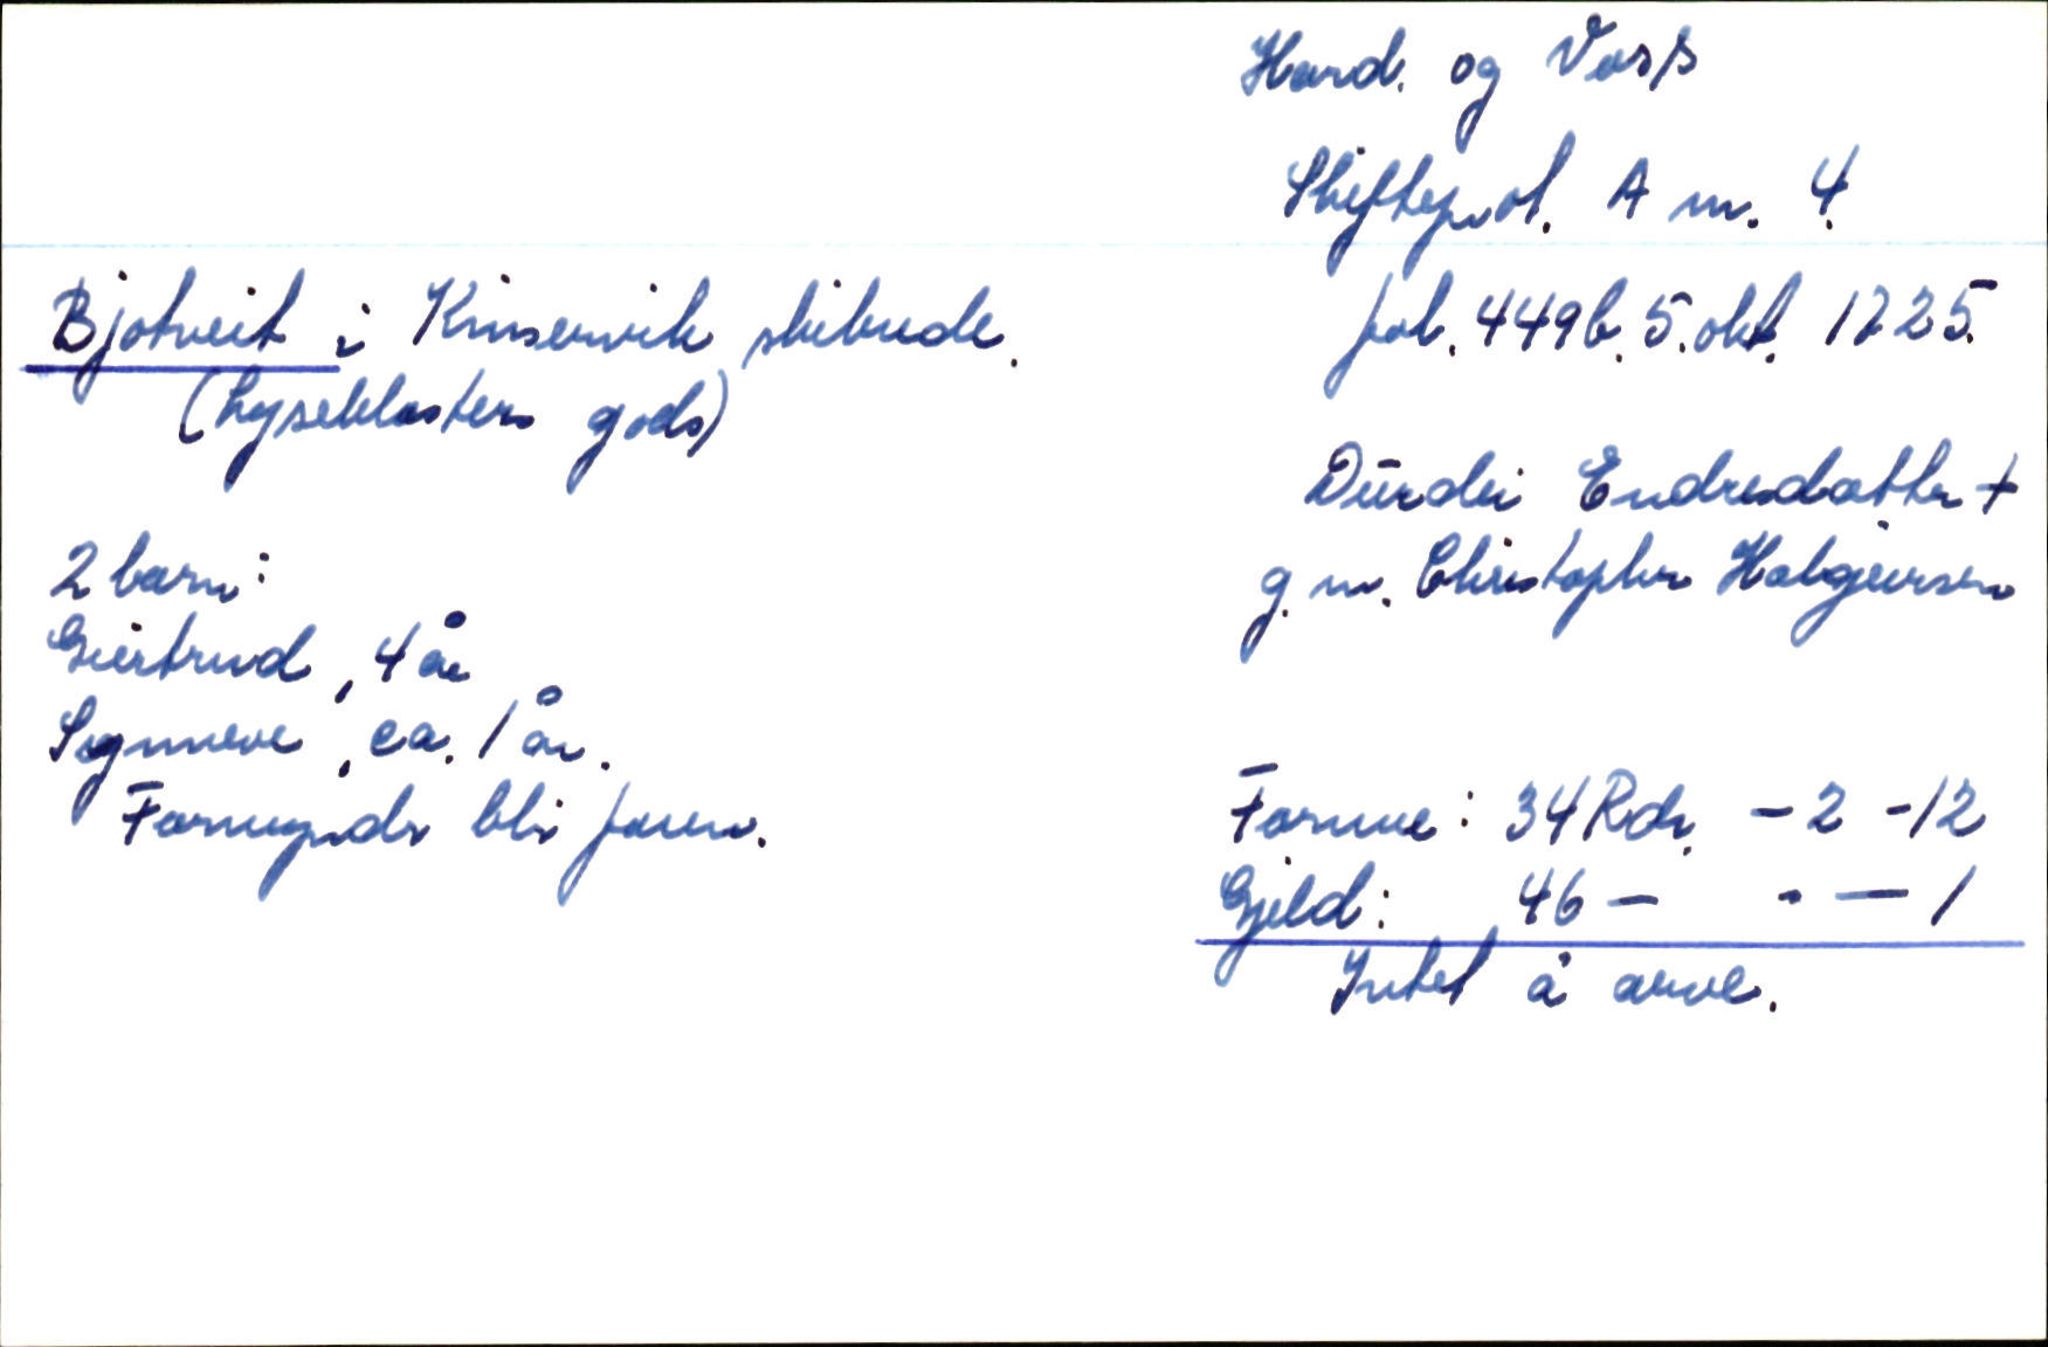 Hard. og Voss
Skifteprot. A nr. 4.
fol. 449b. 5. okt. 1725.
Bjotveit i Kinservik skibrede.
(Lyseklosters gods)
Dürdei Endresdatter +
g. m. Christopher Halgiersen
2 barn:
Giertrud, 4 år
Sygnneve, ca. 1 år.
Formynder bli faren.
Formue: 34 Rdr. - 2 - 12
Gjeld: 46 - - - 1
Intet å arve.